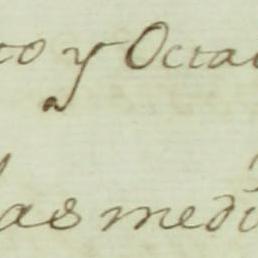 to y Octa
las medi